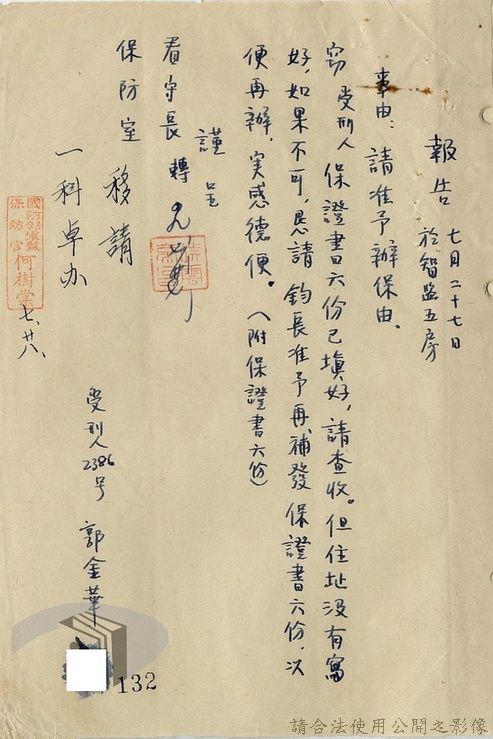 報告 七月二十七日
於智監五房
事由：請准予辦保由。
窃受刑人保證書六份已填好，請查收。但住址沒有寫
好，如果不可，恳請 鈞長准予再補發保證書六份，以
便再辦，实感德便。（附保證書六份）
謹呈
看守長 轉
保防室 移請
一科卓办
國防部
保防官何樹棠
七、廿八
受刑人2386号 郭金華
132
請合法使用公開之影像